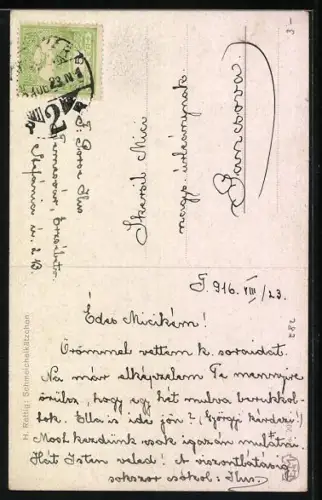 F. Porse Ilus
Temesvár, Erzsébetv.
Stefánia u. 213
Micu
nagys. úrleánynak
H. Rettig: Schmeichelkätzchen
T. 916. VIII/23.
Édes Micikém!
Örömmel vettem k. soraidat.
Na már elképzelem Te mennyire
örülsz, hogy egy hét mulva berukkol-
tok. Ella is ide jön? (Györgyi kérdezi!)
Most kezdünk csak igazán mulatni.
Hát Isten veled! A viszontlátásig
sokszor csókol: Ilus.